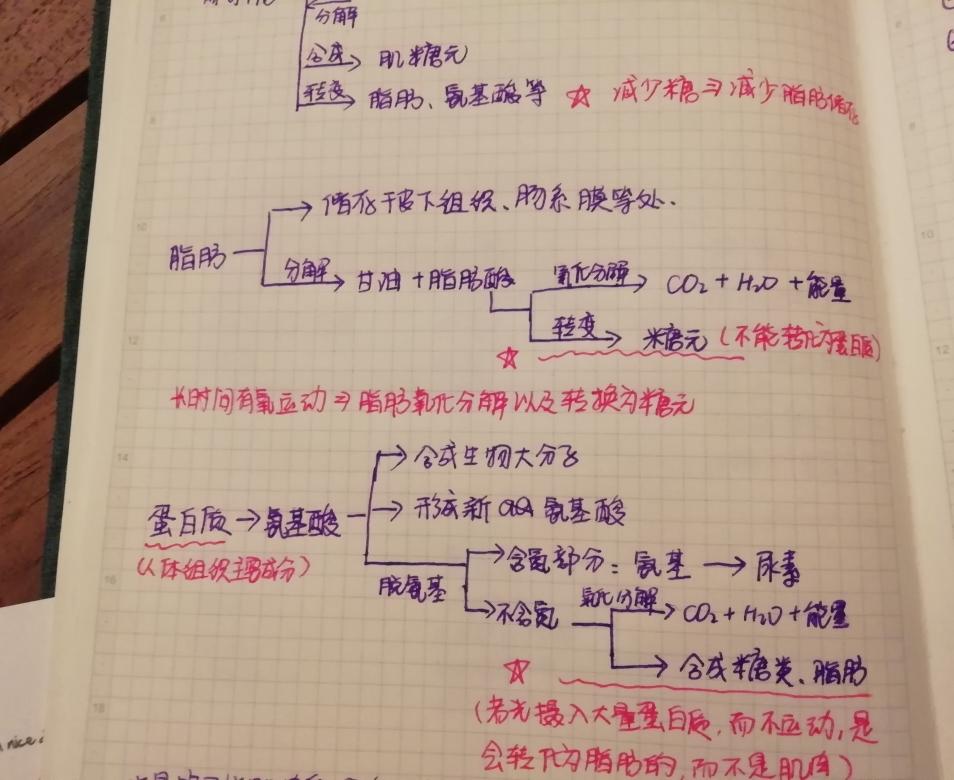 分解
合成 肌糖元
转变 脂肪、氨基酸等 ☆ 减少糖⇒减少脂肪储存
储存于皮下组织、肠系膜等处.
脂肪
分解 甘油+脂肪酸 氧化分解 CO2+H2O+能量
转变 糖元(不能转化为蛋白质)
☆
长时间有氧运动⇒脂肪氧化分解以及转换为糖元
合成生物大分子
蛋白质→氨基酸 → 形成新 氨基酸
(人体组织主要成分)
脱氨基
含氮部分:氨基→尿素
不含氮 氧化分解 CO2+H2O+能量
☆ 合成糖类、脂肪
(若光摄入大量蛋白质,而不运动,是
会转化为脂肪的,而不是肌肉)
nice